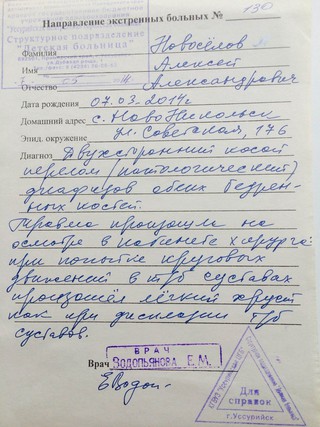 Направление экстренных больных № 130
Структурное подразделение
"Детская больница"
Фамилия Новосёлов
Имя Алексей
Отчество Александрович
Дата рождения 07.03.2014г
Домашний адрес с. НовоНикольск
Эпид. окружение ул. Советская, 176
Диагноз Двухсторонний косой
перелом (патологический)
диафизов обеих бедрен-
ных костей.
Травма произошла на
осмотре в кабинете хирурга:
при попытке круговых
движений в т/б суставах
произошёл лёгкий хруст
как при дисплазии т/б
суставов.
ВРАЧ
Врач ВОДОПЬЯНОВА Е.М.
Для
справок
г. Уссурийск